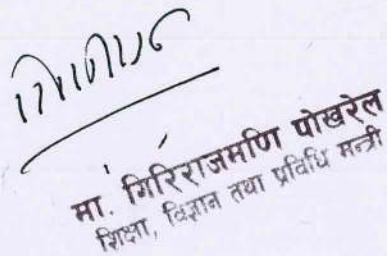 मा. गिरिराजमणि पोखरेल
शिक्षा, विज्ञान तथा प्रविधि मन्त्री